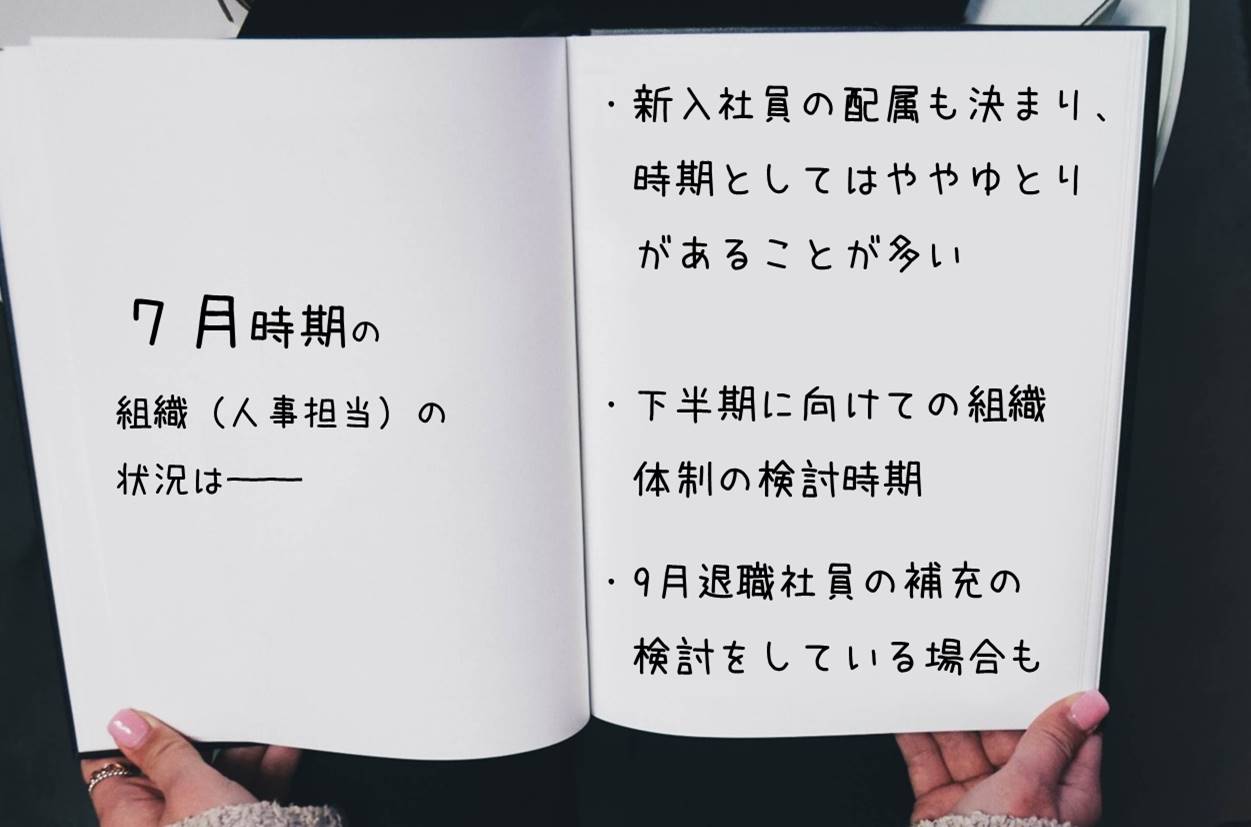 7月時期の
組織（人事担当）の
状況は――
・新入社員の配属も決まり、
時期としてはややゆとり
があることが多い
・下半期に向けての組織
体制の検討時期
・9月退職社員の補充の
検討をしている場合も